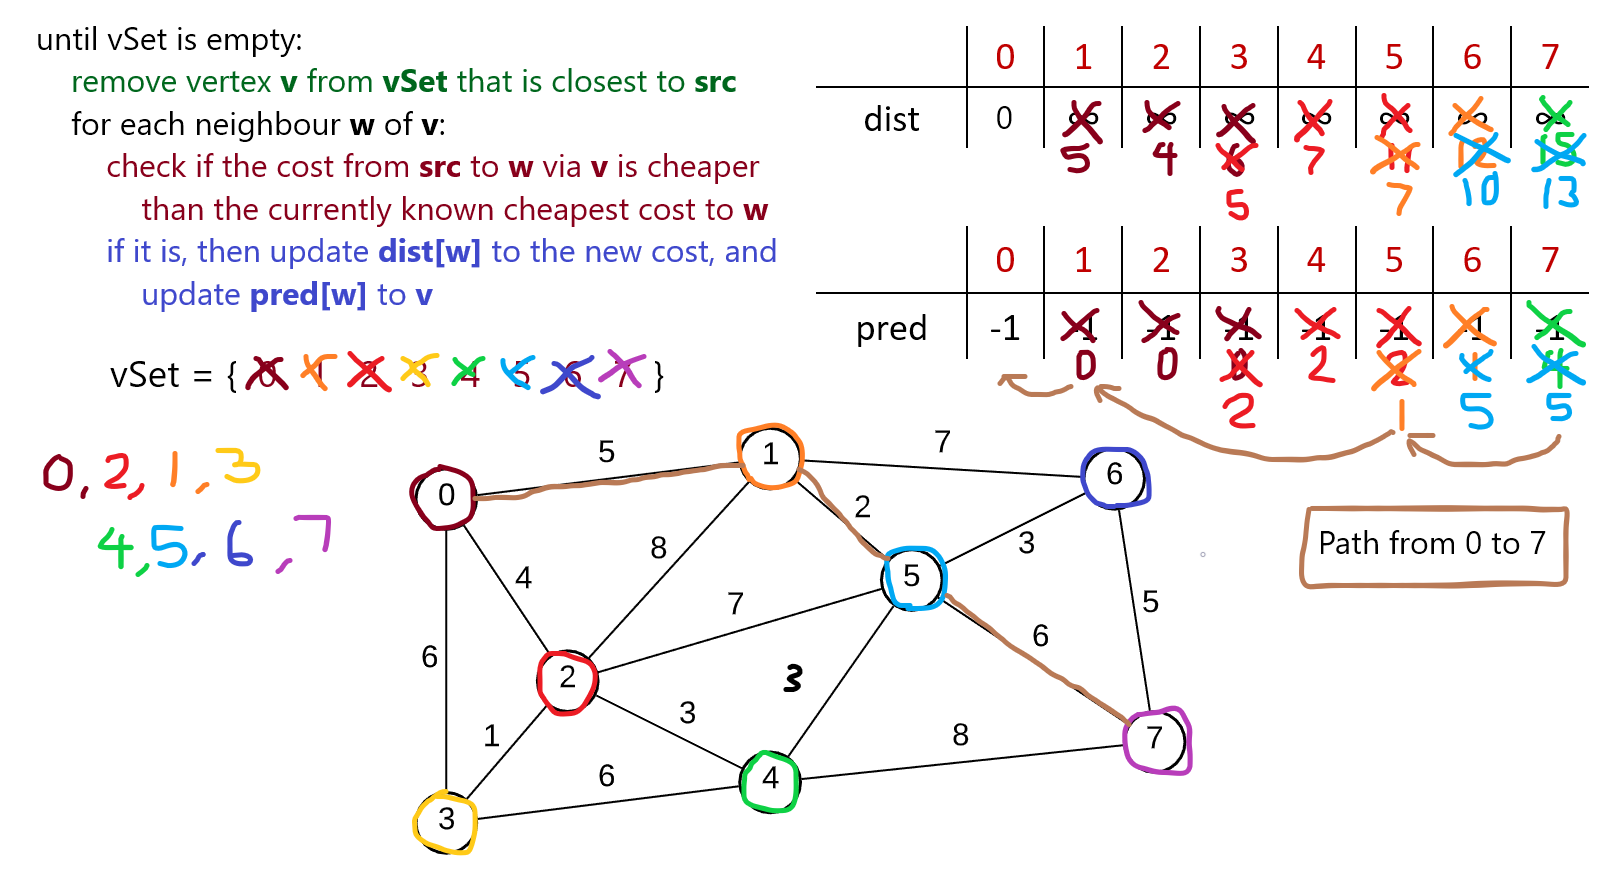 until vSet is empty:
remove vertex v from vSet that is closest to src
for each neighbour w of v:
check if the cost from src to w via v is cheaper
than the currently known cheapest cost to w
if it is, then update dist[w] to the new cost, and
update pred[w] to v
vSet = { 0 1 2 3 4 5 6 7 }
0, 2, 1, 3
4, 5, 6, 7
0 1 2 3 4 5 6 7
dist 0 ∞ ∞ ∞ ∞ ∞ ∞ ∞
5 4 6 7 11 12 15
5 7 10 13
0 1 2 3 4 5 6 7
pred -1 -1 -1 -1 -1 -1 -1 -1
0 0 0 2 2 1 4
2 1 5 5
Path from 0 to 7
5
7
1
6
0
2
8
3
4
5
7
5
6
6
3
2
3
8
1
7
6
4
3